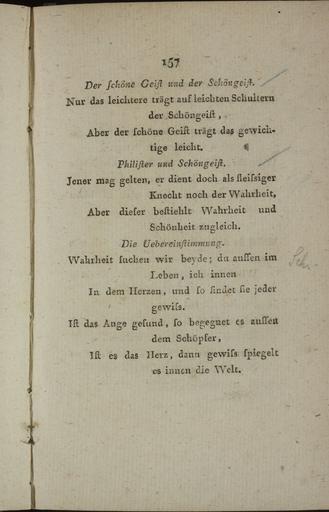 157
Der ſchöne Geiſt und der Schöngeiſt.
Nur das leichtere trägt auf leichten Schultern
der Schöngeiſt,
Aber der ſchöne Geiſt trägt das gewich-
tige leicht.
Philiſter und Schöngeiſt.
Jener mag gelten, er dient doch als fleiſsiger
Knecht noch der Wahrheit,
Aber dieſer beſtiehlt Wahrheit und
Schönheit zugleich.
Die Uebereinſtimmung.
Wahrheit ſuchen wir beyde; du auſſen im
Leben, ich innen
In dem Herzen, und ſo findet ſie jeder
gewiſs.
Iſt das Auge geſund, ſo begegnet es auſſen
dem Schöpfer,
Iſt es das Herz, dann gewiſs ſpiegelt
es innen die Welt.